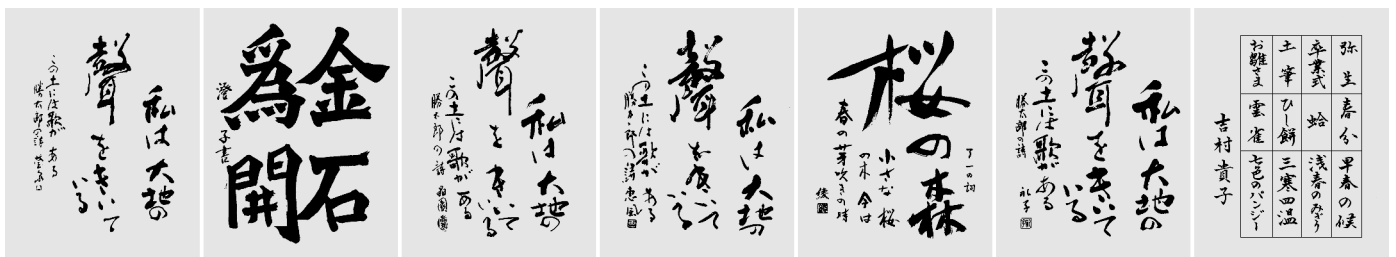 私は大地の
聲をきいて
いる
この土には歌がある
勝太郎の詩
金石
爲開
澄子書
私は大地の
聲をきいて
いる
この土には歌が有る
勝太郎の詩
私は大地の
聲を いて
いる
この土には歌がある
勝太郎の詩 恵風
桜の森
了一の詞
小さな桜
の木今は
春の芽吹きの時
綾
私は大地の
聲をきいて
いる
この土には歌がある
勝太郎の詩 礼子
弥生 春分 早春の候
卒業式 蛤 浅春のみぎり
土筆 ひし餅 三寒四温
お雛さま 雲雀 七色のパンジー
吉村貴子